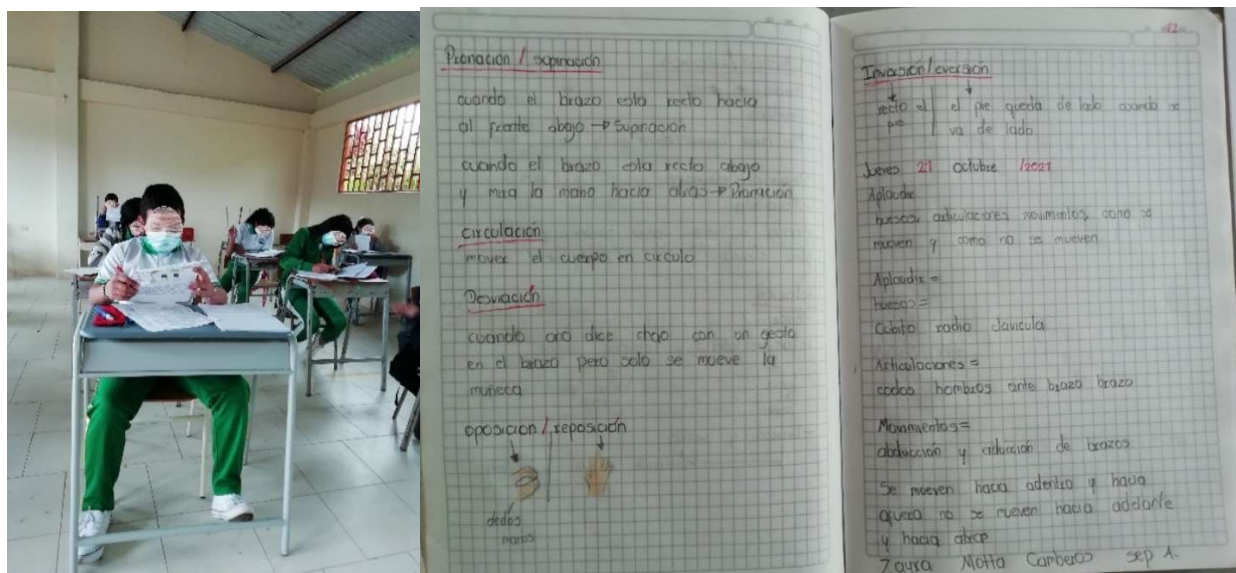 Pronación / supinación
cuando el brazo esta recto hacia
al frente abajo → Supinación
cuando el brazo esta recto abajo
y mira la mano hacia atras → Pronación
circulación
mover el cuerpo en circulo
Desviación
cuando uno dice chao con un gesto
en el brazo pero solo se mueve la
muñeca
oposicion / reposición
dedos
manos
12
Invasion / eversión
recto el pie
el pie queda de lado cuando se
va de lado
Jueves 21 octubre /2021
Aplaudir
huesos articulaciones movimientos como se
mueven y como no se mueven
Aplaudir =
huesos =
Cubito radio clavicula
Articulaciones =
codos hombros ante brazo brazo
Movimientos =
abducción y aducción de brazos
Se mueven hacia adentro y hacia
afuera no se mueven hacia adelante
y hacia
Motta Camberos sep 1.